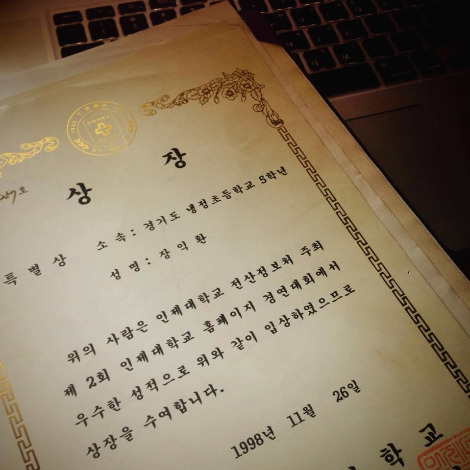 상 장
특별상 소속 : 경기도 냉정초등학교 5학년
성명 : 장익환
위의 사람은 인제대학교 전산정보처 주최
제 2회 인제대학교 홈페이지 경연대회에서
우수한 성적으로 위와 같이 입상하였으므로
상장을 수여합니다.
1998년 11월 26일
학교